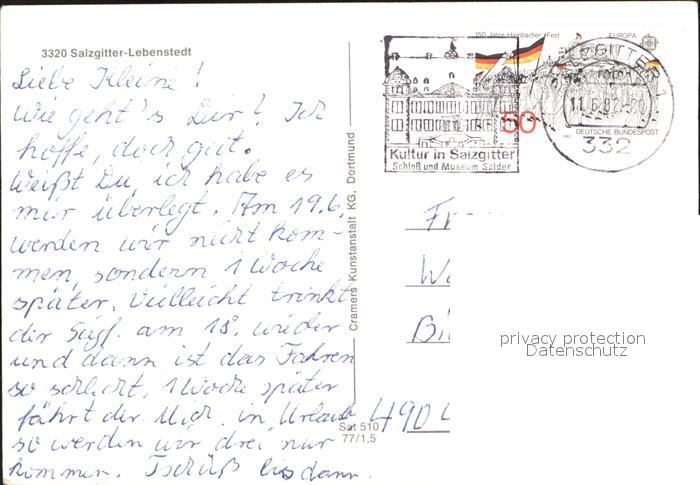 3320 Salzgitter-Lebenstedt
Liebe Kleine!
Wie geht's Dir! Ich
hoffe, doch gut.
Weißt Du, ich habe es
mir überlegt. Am 19.6.
werden wir nicht kom-
men, sondern 1 Woche
später. Vielleicht trinkt
der am 18. wieder
und dann ist das Fahren
so schlecht. 1 Woche später
fährt der in Urlaub
so werden wir drei nur
kommen. Tschüß bis dann.
Cramers Kunstanstalt KG, Dortmund
Sat 510
77/1,5
150 Jahre Hambacher Fest
EUROPA
50
DEUTSCHE BUNDESPOST
Kultur in Salzgitter
Schloß und Museum Salder
SALZGITTER 1
11.6.82
332
Fr
W
Bi
490
privacy protection
Datenschutz